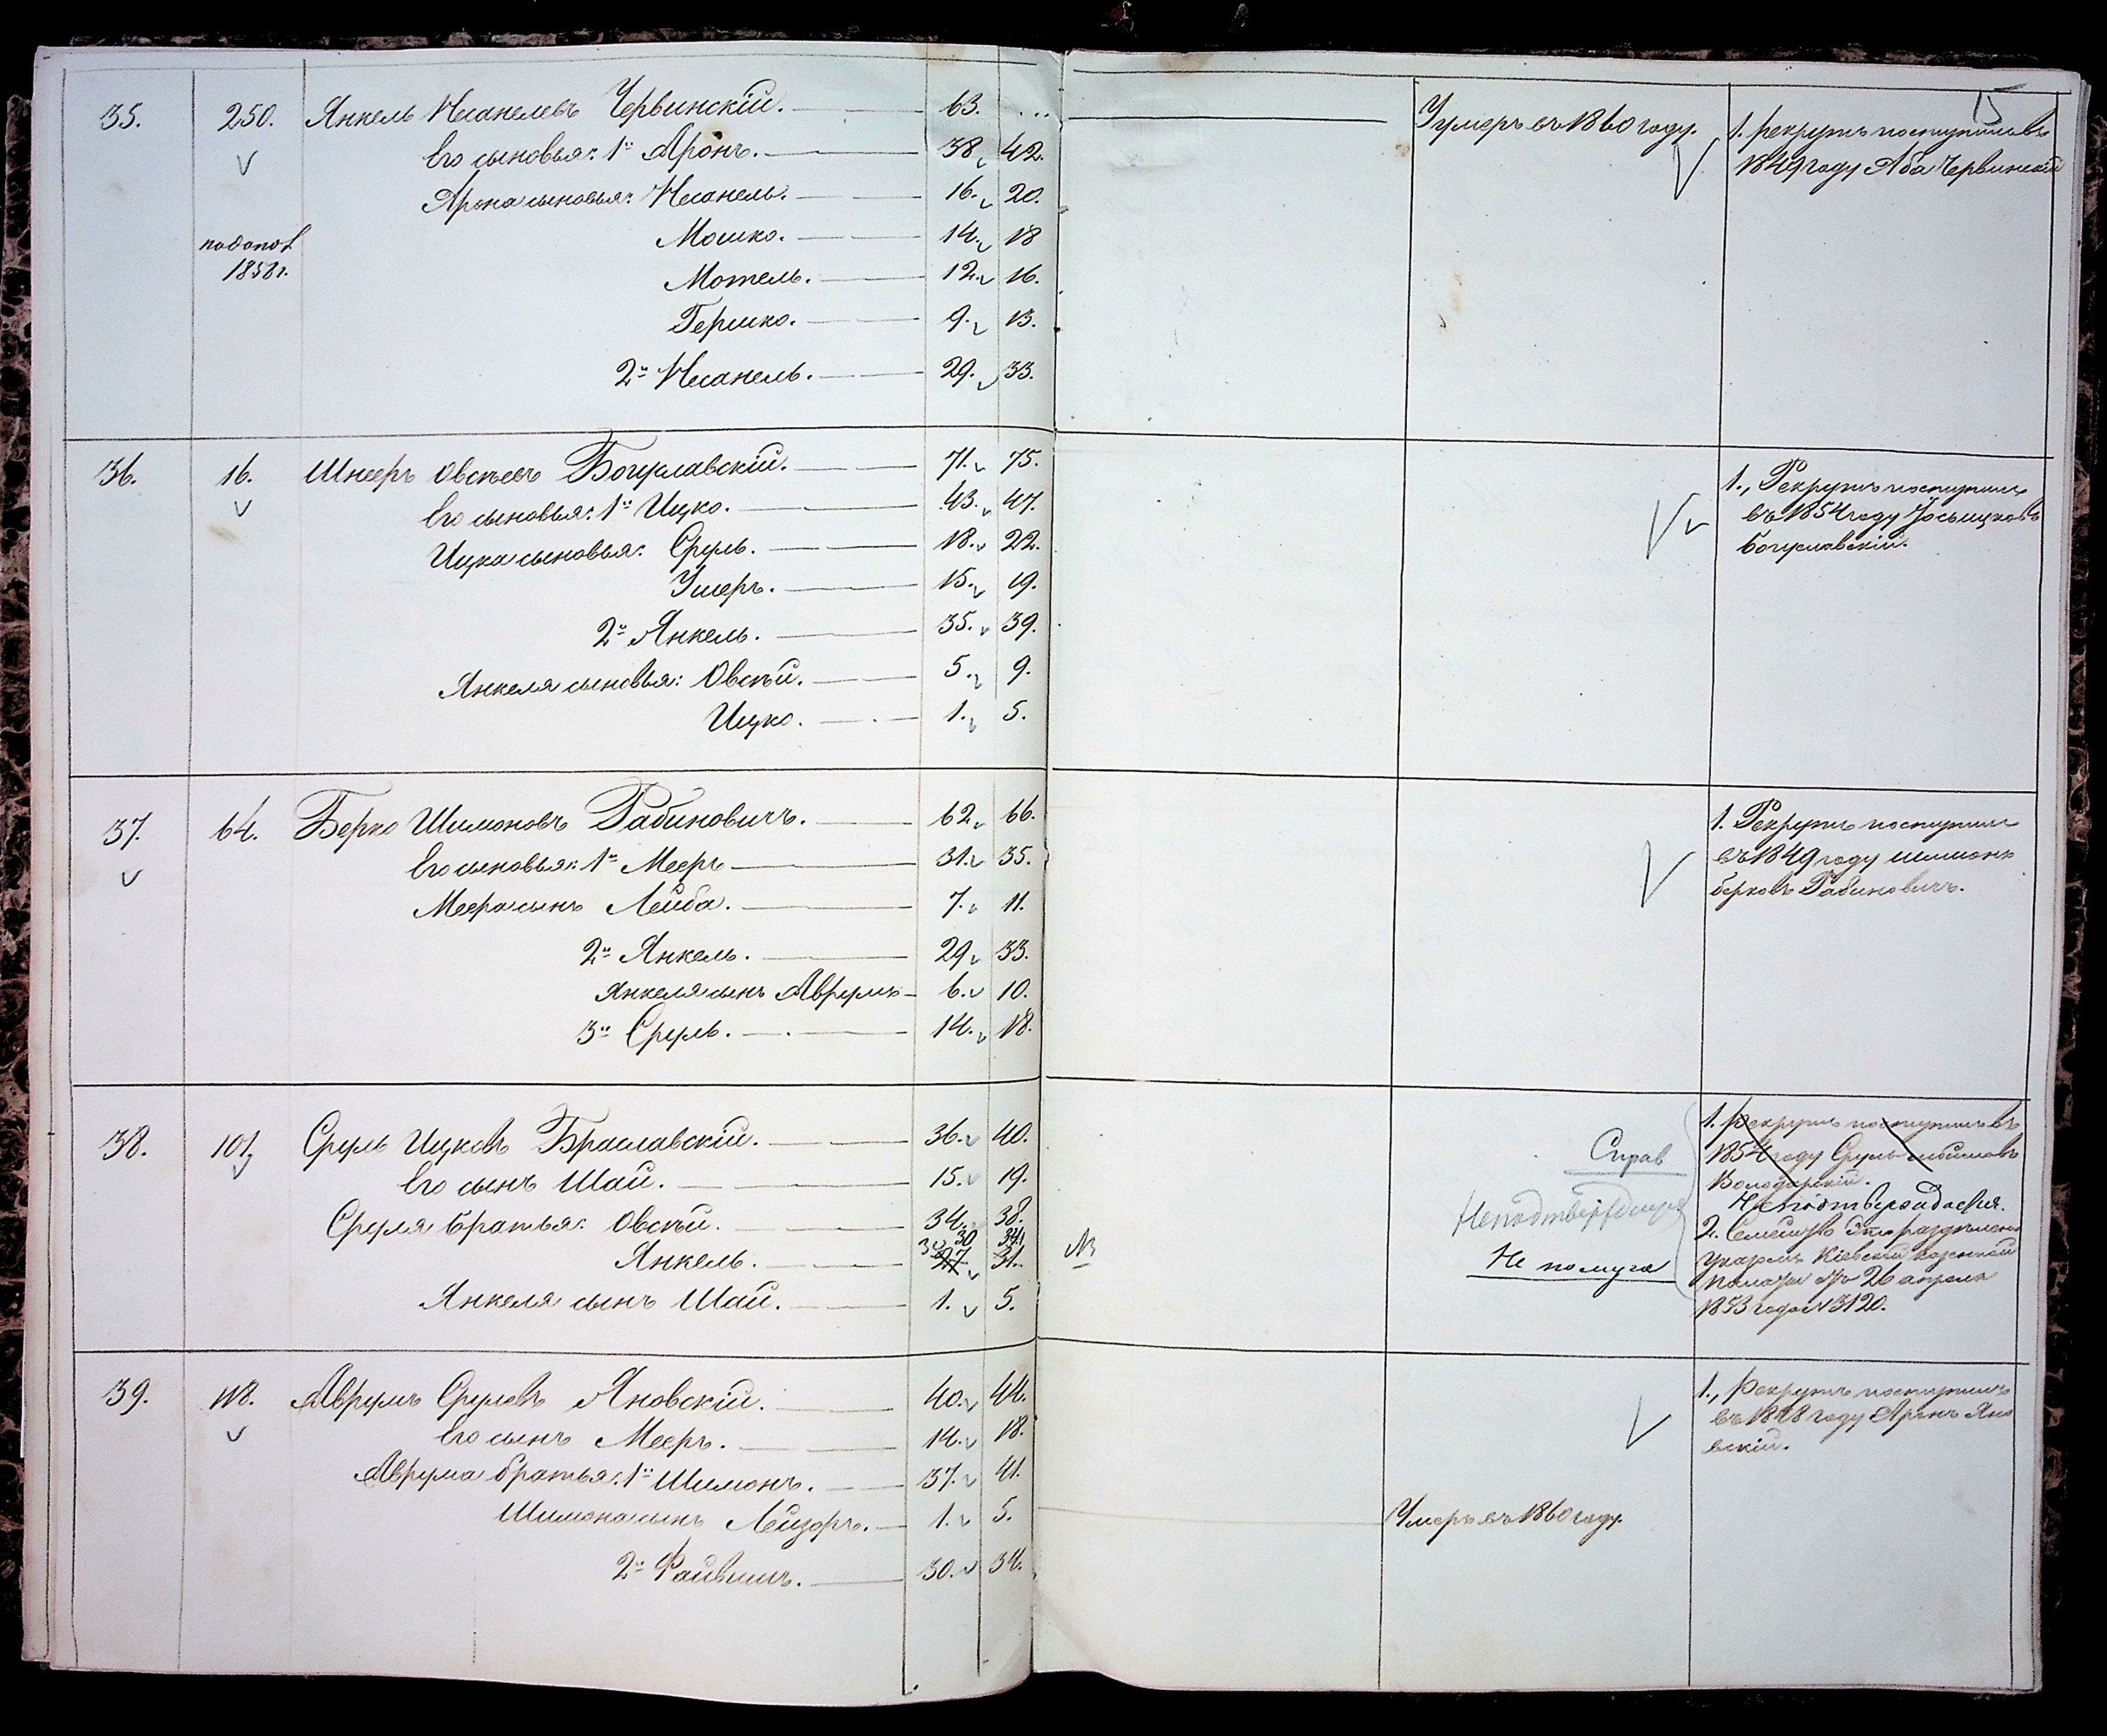 15
35. 250. Янкель Нисанелевъ Червинскій. 63. ... Умеръ въ 1860 году. 1. рекрутъ поступилъ въ
Его сыновья: 1й Аронъ. 38 42. 1849 году Аба Червинскій
Арона сыновья: Нисанель. 16. 20.
Мошко. 14. 18
1858 г.
Мотель. 12. 16.
Гершко. 9. 13.
2й Нисанель. 29. 33.
36. 16. Шнееръ Овсѣевъ Богуславскій. 71. 75. 1., Рекрутъ поступилъ
Его сыновья: 1й Ицко. 43. 47. въ 1854 году Іось Ицковъ
Ицка сыновья: Сруль. 18. 22. Богуславскій.
Ушеръ. 15. 19.
2й Янкель. 35. 39.
Янкеля сыновья: Овсѣй. 5. 9.
Ицко. 1. 5.
37. 64. Берко Шимоновъ Рабиновичъ. 62. 66. 1. Рекрутъ поступилъ
Его сыновья: 1й Мееръ 31. 35. въ 1849 году Шимонъ
Меера сынъ Лейба. 7. 11. Берковъ Рабиновичъ.
2й Янкель. 29. 33.
Янкеля сынъ Аврумъ 6. 10.
3й Сруль. 14. 18.
38. 101. Сруль Ицковъ Браславскій. 36. 40. Справ 1. рекрутъ поступилъ въ
Его сынъ Шай. 15. 19. 1854 году Сруль
Володарскій.
Сруля братья: Овсѣй. 34. 38. Неподтверждается.
Янкель. 30 27 34 31. № Не получа 2. Семейство это раздѣлено
указомъ Кіевской казенной
Янкеля сынъ Шай. 1. 5. Палаты отъ 26 апреля
1853 года № 3120.
39. 118. Аврумъ Срулевъ Яновскій. 40. 44. 1., Рекрутъ поступилъ
Его сынъ Мееръ. 14. 18. въ 1848 году Аронъ Яно
вскій.
Аврума братья: 1й Шимонъ. 37. 41.
Шимона сынъ Лейзоръ. 1. 5. Умеръ въ 1860 году.
2й Файвишъ. 30. 34.